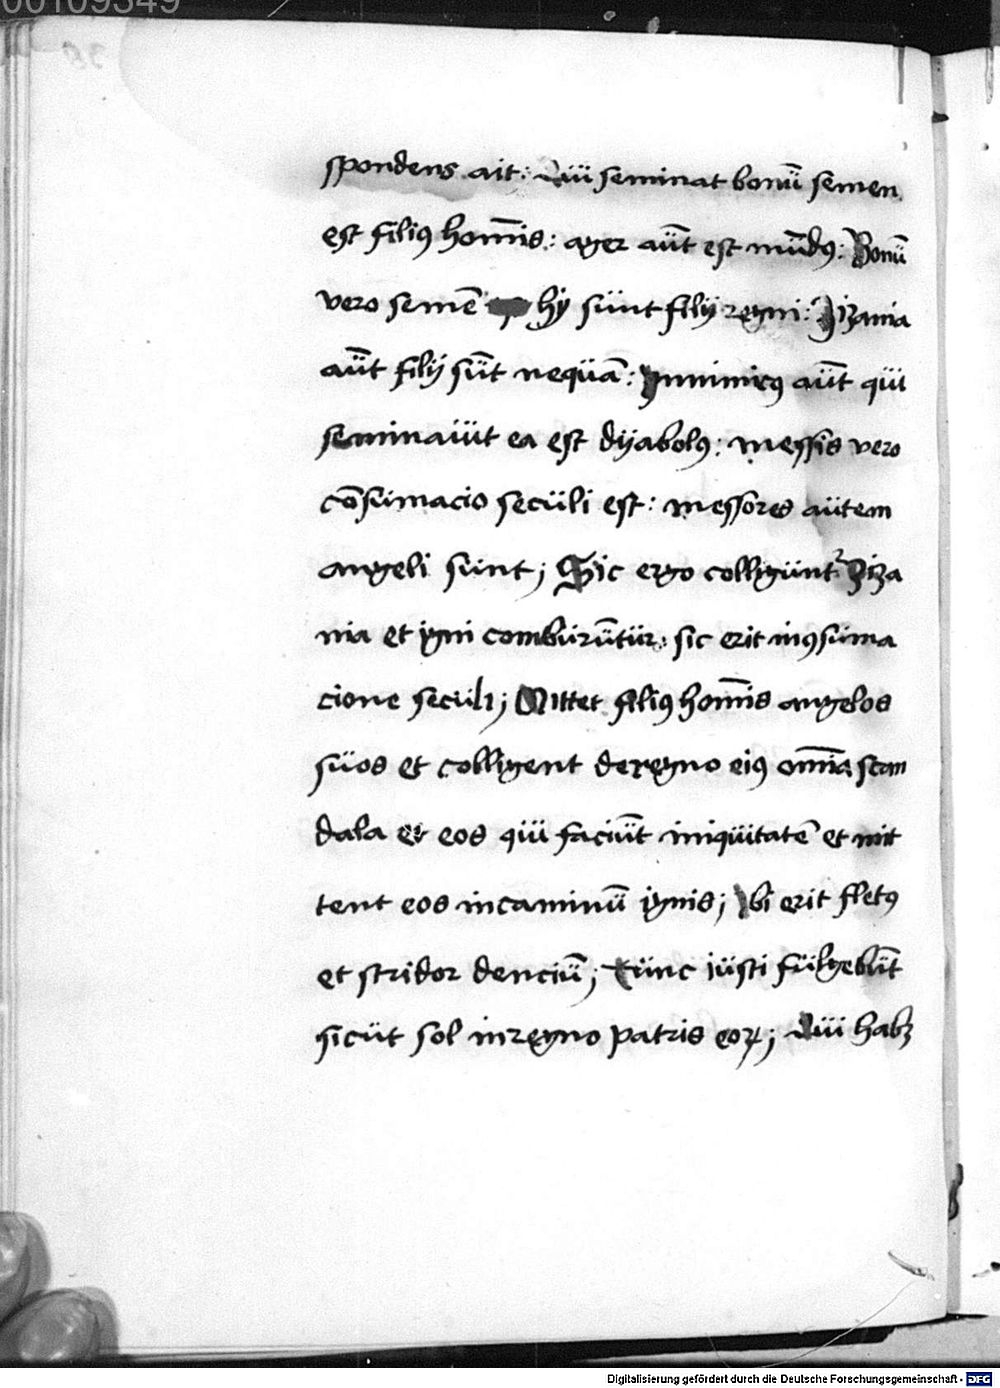 00109349
spondens ait: Qui seminat bonū semen
est filiꝰ hom̄is: ager aūt est mūdꝰ: Bonū
vero semē hy sunt filij regni: Zizania
aūt filij sūt nequā: Inimicꝰ aūt qui
seminauit ea est dyabolꝰ: messis vero
cōsumacio seculi est: messores autem
angeli sunt; Sic ergo colligunt᷑ ziza
nia et igni comburūtur: sic erit in ꝯsuma
cione seculi; Mittet filiꝰ hom̄is angelos
suos et colligent de regno eiꝰ om̄ia scan
dala et eos qui faciūt iniquitatē et mit
tent eos in caminū ignis; Ibi erit fletꝰ
et stridor denciū; Tunc iusti fulgebūt
sicut sol in regno patris eoꝝ; Qui habꝫ
Digitalisierung gefördert durch die Deutsche Forschungsgemeinschaft - DFG